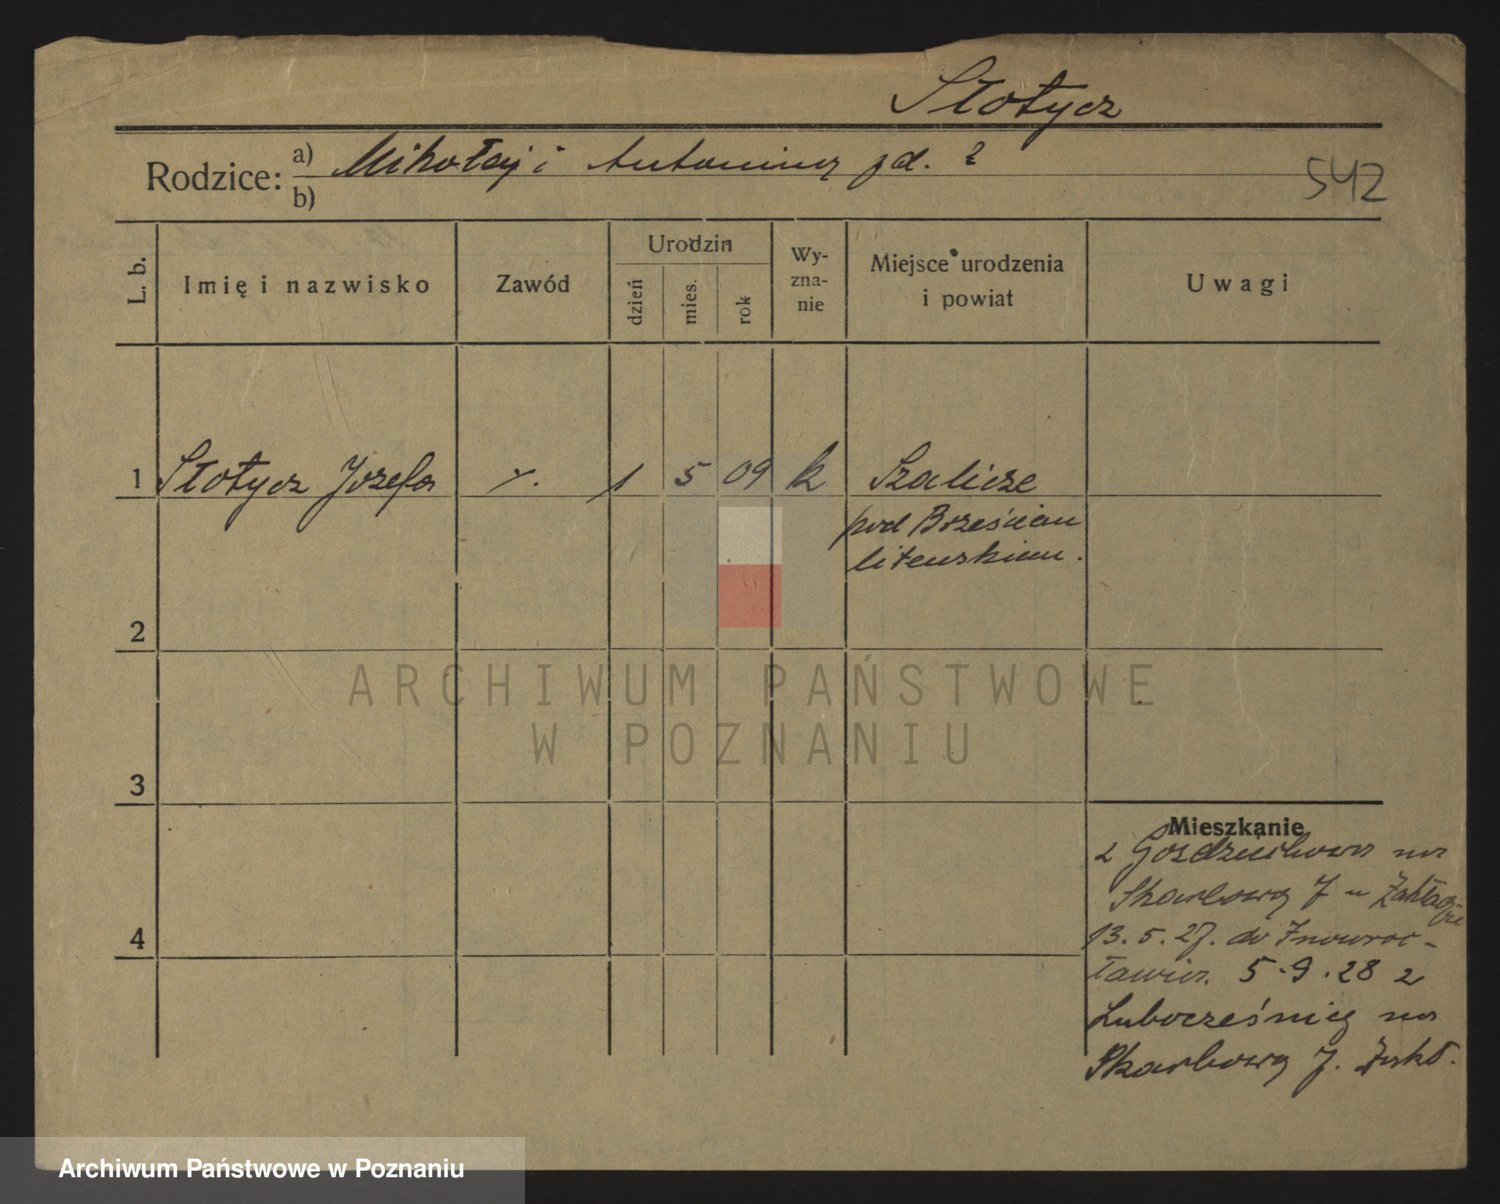 Słotycz
Rodzice: a) Mikołaj i Antonina zd. ?
b)
542
L. b.
Imię i nazwisko
Zawód
Urodzin
dzień
mies.
rok
Wy-
zna-
nie
Miejsce urodzenia
i powiat
Uwagi
1 Słotycz Józefa 1 5 09 k Szalicze
pod Brześciem
litewskiem.
2
3
4
Mieszkanie
z Goździchowa na
Skarbową 7
13.5.27. do Inowroc-
ławia. 5.9.28 z
Lubocześnicy na
Skarbową 7.
ARCHIWUM PAŃSTWOWE
W POZNANIU
Archiwum Państwowe w Poznaniu